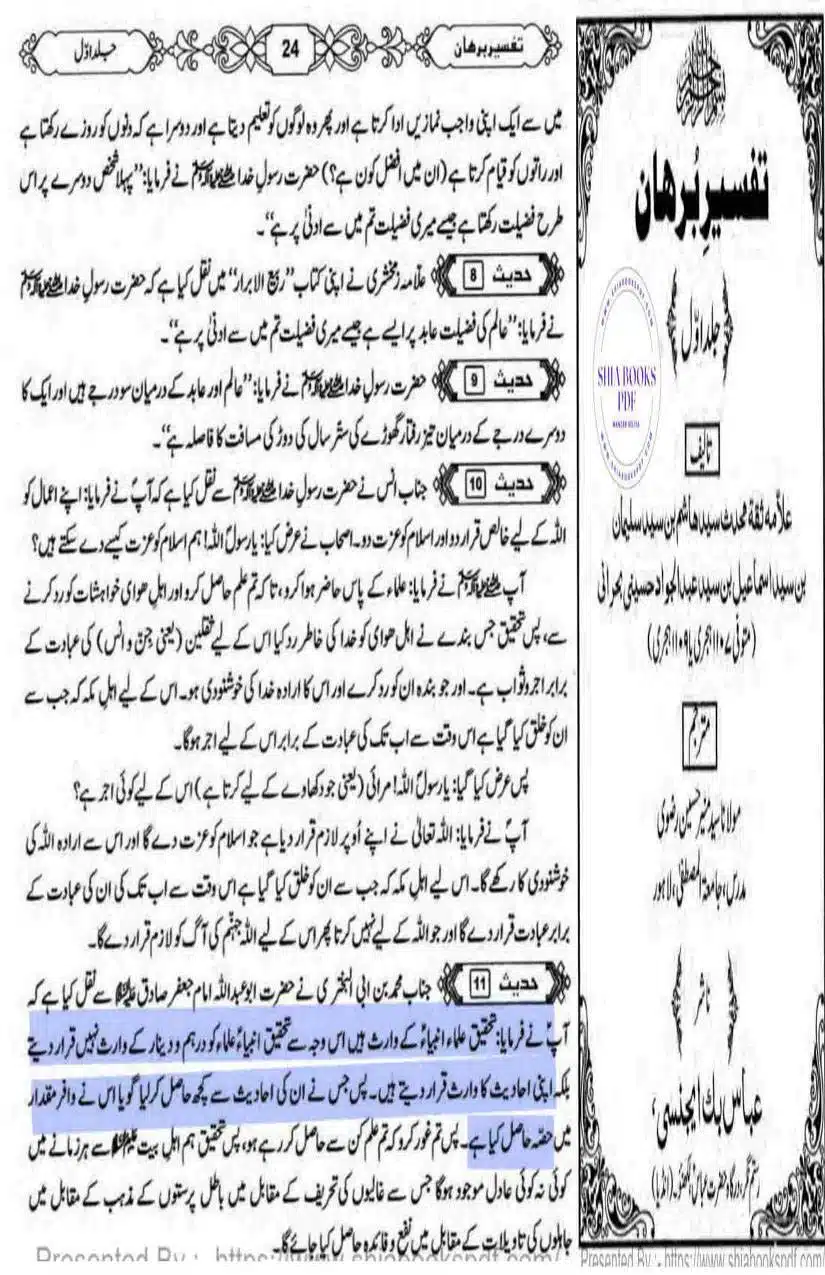 تفسیر برهان
24
جلد اوّل
میں سے ایک اپنی واجب نمازیں ادا کرتا ہے اور پھر وہ لوگوں کو تعلیم دیتا ہے اور دوسرا ہے کہ دنوں کو روزے رکھتا ہے
اور راتوں کو قیام کرتا ہے (ان میں افضل کون ہے؟) حضرت رسولِ خدا ﷺ نے فرمایا: ”پہلا شخص دوسرے پر اس
طرح فضیلت رکھتا ہے جیسے میری فضیلت تم میں سے ادنیٰ پر ہے“۔
حدیث 8 علّامہ زمخشری نے اپنی کتاب ”ربیع الابرار“ میں نقل کیا ہے کہ حضرت رسولِ خدا ﷺ
نے فرمایا: ”عالم کی فضیلت عابد پر ایسے ہے جیسے میری فضیلت تم میں سے ادنیٰ پر ہے“۔
حدیث 9 حضرت رسولِ خدا ﷺ نے فرمایا: ”عالم اور عابد کے درمیان سو درجے ہیں اور ایک کا
دوسرے درجے کے درمیان تیز رفتار گھوڑے کی ستّر سال کی دوڑ کی مسافت کا فاصلہ ہے“۔
حدیث 10 جناب انس نے حضرت رسولِ خدا ﷺ سے نقل کیا ہے کہ آپؐ نے فرمایا: اپنے اعمال کو
اللہ کے لیے خالص قرار دو اور اسلام کو عزت دو۔ اصحاب نے عرض کیا: یارسولؐ اللہ! ہم اسلام کو عزت کیسے دے سکتے ہیں؟
آپ ﷺ نے فرمایا: علماء کے پاس حاضر ہوا کرو، تاکہ تم علم حاصل کرو اور اہلِ ھوای خواہشات کو رد کرنے
سے، پس تحقیق جس بندے نے اہل ھوای کو خدا کی خاطر رد کیا اس کے لیے ثقلین (یعنی جنّ و انس) کی عبادت کے
برابر اجر و ثواب ہے۔ اور جو بندہ ان کو رد کرے اور اس کا ارادہ خدا کی خوشنودی ہو۔ اس کے لیے اہلِ مکہ کہ جب سے
ان کو خلق کیا گیا ہے اس وقت سے اب تک کی عبادت کے برابر اس کے لیے اجر ہوگا۔
پس عرض کیا گیا: یارسولؐ اللہ! مرائی (یعنی جو دکھاوے کے لیے کرتا ہے) اس کے لیے کوئی اجر ہے؟
آپؐ نے فرمایا: اللہ تعالیٰ نے اپنے اُوپر لازم قرار دیا ہے جو اسلام کو عزت دے گا اور اس سے ارادہ اللہ کی
خوشنودی کا رکھے گا۔ اس لیے اہلِ مکہ کہ جب سے ان کو خلق کیا گیا ہے اس وقت سے اب تک کی ان کی عبادت کے
برابر عبادت قرار دے گا اور جو اللہ کے لیے نہیں کرتا پھر اس کے لیے اللہ جہنّم کی آگ کو لازم قرار دے گا۔
حدیث 11 جناب محمد بن ابی البختری نے حضرت ابوعبداللہ امام جعفر صادق علیہ السلام سے نقل کیا ہے کہ
آپؑ نے فرمایا: تحقیق علماء انبیاءؑ کے وارث ہیں اس وجہ سے تحقیق انبیاءؑ علماء کو درہم و دینار کے وارث نہیں قرار دیتے
بلکہ اپنی احادیث کا وارث قرار دیتے ہیں۔ پس جس نے ان کی احادیث سے کچھ حاصل کرلیا گویا اس نے وافر مقدار
میں حصّہ حاصل کیا ہے۔ پس تم غور کرو کہ تم علم کن سے حاصل کر رہے ہو، پس تحقیق ہم اہلِ بیت علیہم السلام سے ہر زمانے میں
کوئی نہ کوئی عادل موجود ہوگا جس سے غالیوں کی تحریف کے مقابل میں باطل پرستوں کے مذہب کے مقابل میں
جاہلوں کی تاویلات کے مقابل میں نفع و فائدہ حاصل کیا جائے گا۔
Presented By : https://www.shiabookspdf.com/
تفسیرِ بُرهان
جلد اوّل
SHIA BOOKS
PDF
تالیف
علّامہ ثقۃ محدث سید هاشم بن سید سلیمان
بن سید اسماعیل بن سید عبدالجواد حسینی بحرانی
(متوفّی ۱۱۰۷ ہجری یا ۱۱۰۹ ہجری)
مترجم
مولانا سید منیر حسین رضوی
مدرس، جامعۃ المصطفیٰ، لاہور
ناشر
عباس بک ایجنسی،
رستم نگر، درگاہ حضرت عباسؑ، لکھنؤ۔ (انڈیا)
Presented By : https://www.shiabookspdf.com/